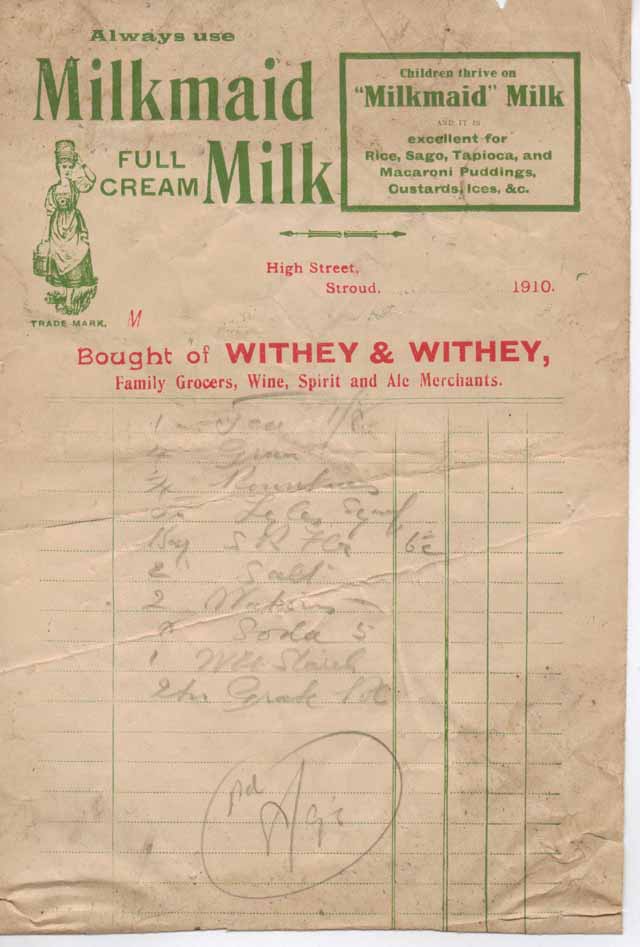 Always use
Milkmaid
FULL
CREAM Milk
TRADE MARK.
Children thrive on
"Milkmaid" Milk
AND IT IS
excellent for
Rice, Sago, Tapioca, and
Macaroni Puddings,
Custards, Ices, &c.
High Street,
Stroud, 1910.
M
Bought of WITHEY & WITHEY,
Family Grocers, Wine, Spirit and Ale Merchants.
1 Tea 1/8
4
¼
Syrup
Bag S R
2 Salt
2
Soda 5
1 Starch
2